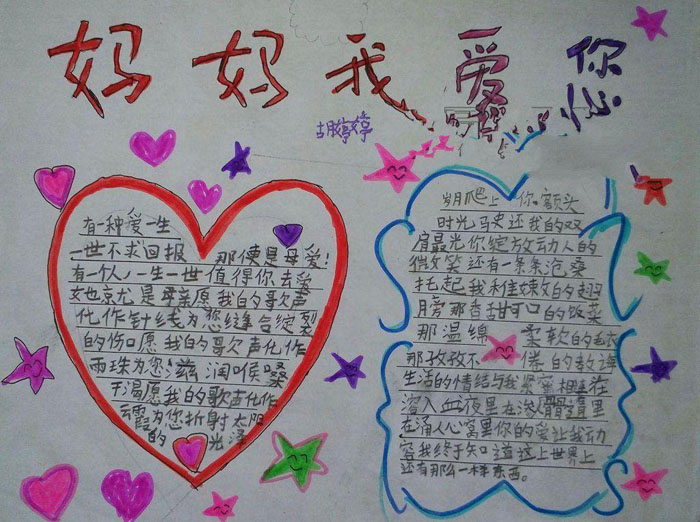 妈妈我爱您
胡婷婷
有一种爱一生
一世不求回报 那便是母爱!
有一个人,一生一世值得你去爱
她也就是母亲愿我的歌声
化作针线为您缝合绽裂
的伤口愿我的歌声化作
雨珠为您滋润喉嗓
干渴愿我的歌声化作
云霞为您折射太阳
的 光泽
岁月爬上你额头
时光 还我的双
肩最光你绽放动人的
微笑还有一条条沧桑
托起我稚嫩的翅
膀那香甜可口的饭菜
那温绵 柔软的毛衣
那孜孜不 倦的教诲
生活的情结与我紧密相连在
溶入血液里在渗入骨髓里
在涌人心窝里你的爱让我动
容我终于知道这上世界上
还有那么一样东西。